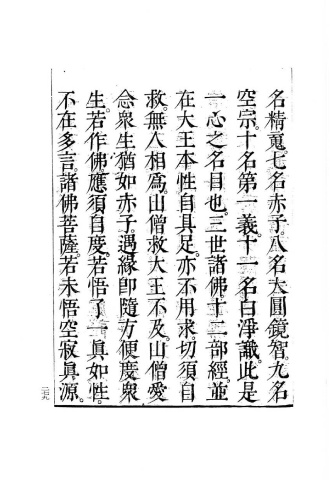 名精䰟。七名赤子。八名大圓鏡智。九名
空宗。十名第一義。十一名白淨識。此是
一心之名目也。三世諸佛十二部經。並
在大王本性自具足。亦不用求。切須自
救。無人相爲。山僧救大王不及。山僧愛
念衆生。猶如赤子。遇緣卽隨方便度衆
生。若作佛。應須自度。若悟了一眞如性。
不在多言。諸佛菩薩。若未悟空寂眞源。